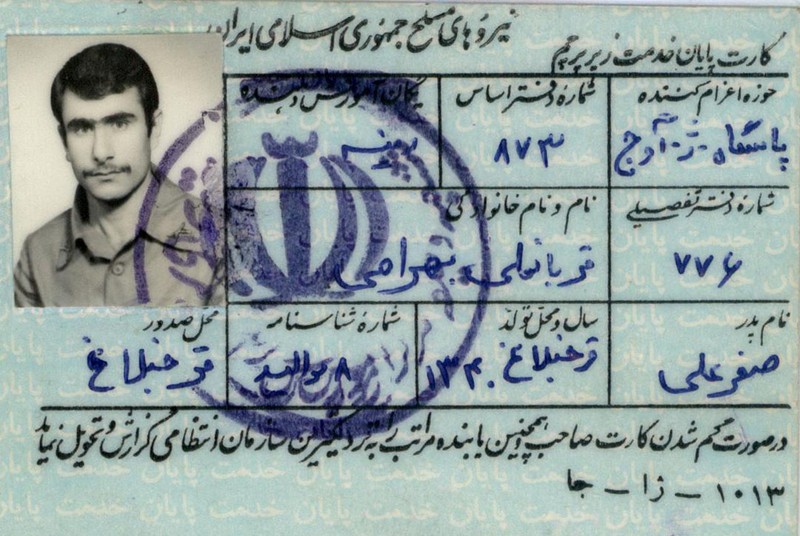 نیروهای مسلح جمهوری اسلامی ایران
کارت پایان خدمت زیر پرچم
حوزه اعزام کننده
پاسگاه ژ.آوج
شماره دفتر اساس
۸۷۳
یگان آموزش دهنده
شماره دفتر تفصیلی
۷۷۶
نام و نام خانوادگی
قربانعلی بهرامی
نام پدر
صفرعلی
سال و محل تولد
قرخبلاغ ۱۳۴۰
شماره شناسنامه
۸ موالید
محل صدور
قرخبلاغ
در صورت گم شدن کارت صاحب و همچنین یابنده مراتب را به نزدیکترین سازمان انتظامی گزارش و تحویل نماید
۱۰۱۳ - ژا - جا